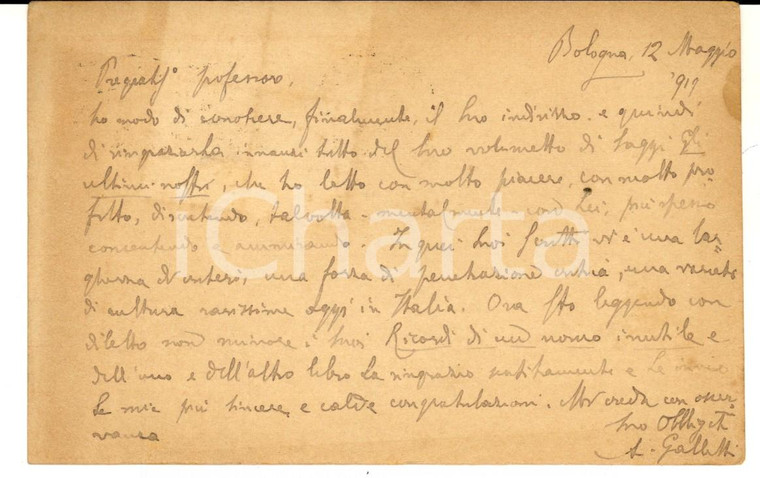 Bologna, 12 Maggio
'919
Pregiat.° professore,
ho modo di conoscere, finalmente, il Suo indirizzo e quindi
di ringraziarLa innanzi tutto del Suo volumetto di saggi Gli
ultimi nostri, che ho letto con molto piacere, con molto pro-
fitto, discutendo, talvolta, mentalmente con Lei, più spesso
consentendo e ammirando. In quei Suoi scritti vi è una lar-
ghezza di criteri, una forza di penetrazione critica, una varietà
di cultura rarissime oggi in Italia. Ora sto leggendo con
diletto non minore i Suoi Ricordi di un uomo inutile e
dell'uno e dell'altro libro La ringrazio sentitamente e Le invio
le mie più sincere e calde congratulazioni. Mi creda con osser-
vanza
Suo Obbligat.
A. Galletti
iCharta